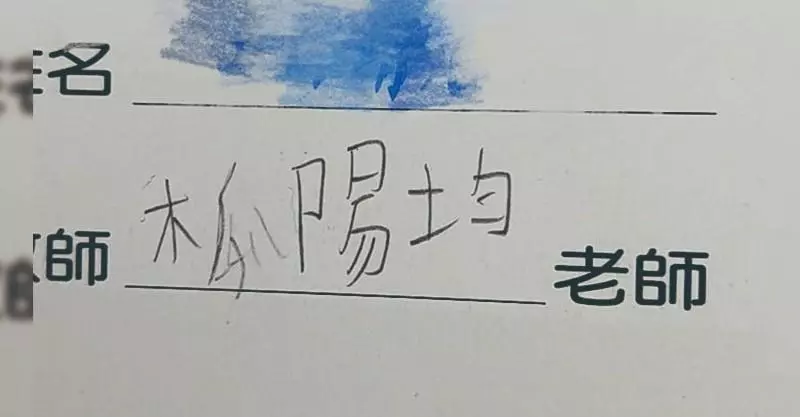 名
師 陽均 老師